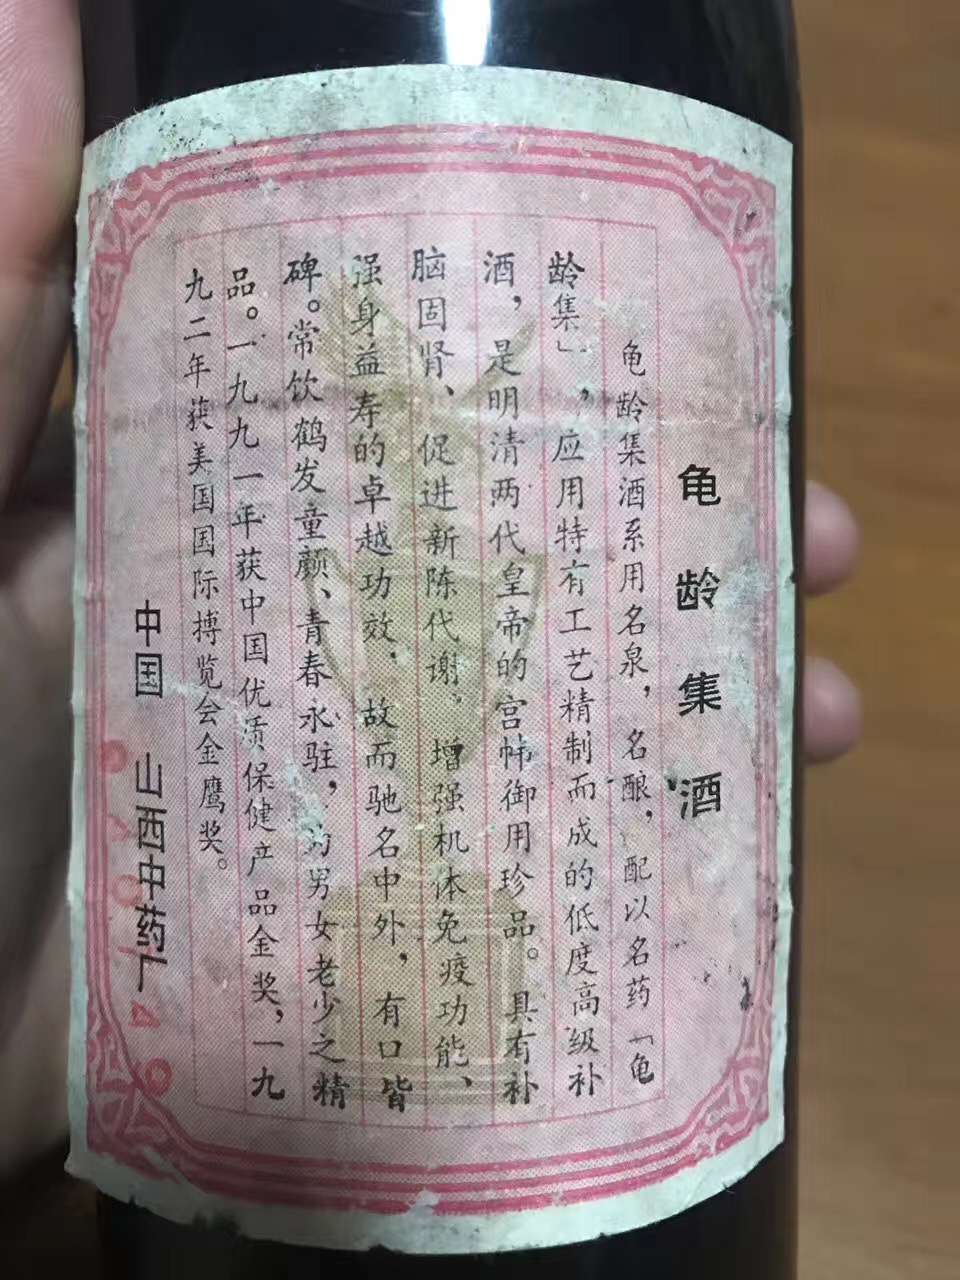 龟龄集酒
龟龄集酒系用名泉，名酿，配以名药「龟
龄集」，应用特有工艺精制而成的低度高级补
酒，是明清两代皇帝的宫帏御用珍品。具有补
脑固肾、促进新陈代谢，增强机体免疫功能、
强身益寿的卓越功效，故而驰名中外，有口皆
碑。常饮鹤发童颜、青春永驻，为男女老少之精
品。一九九一年获中国优质保健产品金奖，一九
九二年获美国国际博览会金鹰奖。
中国 山西中药厂